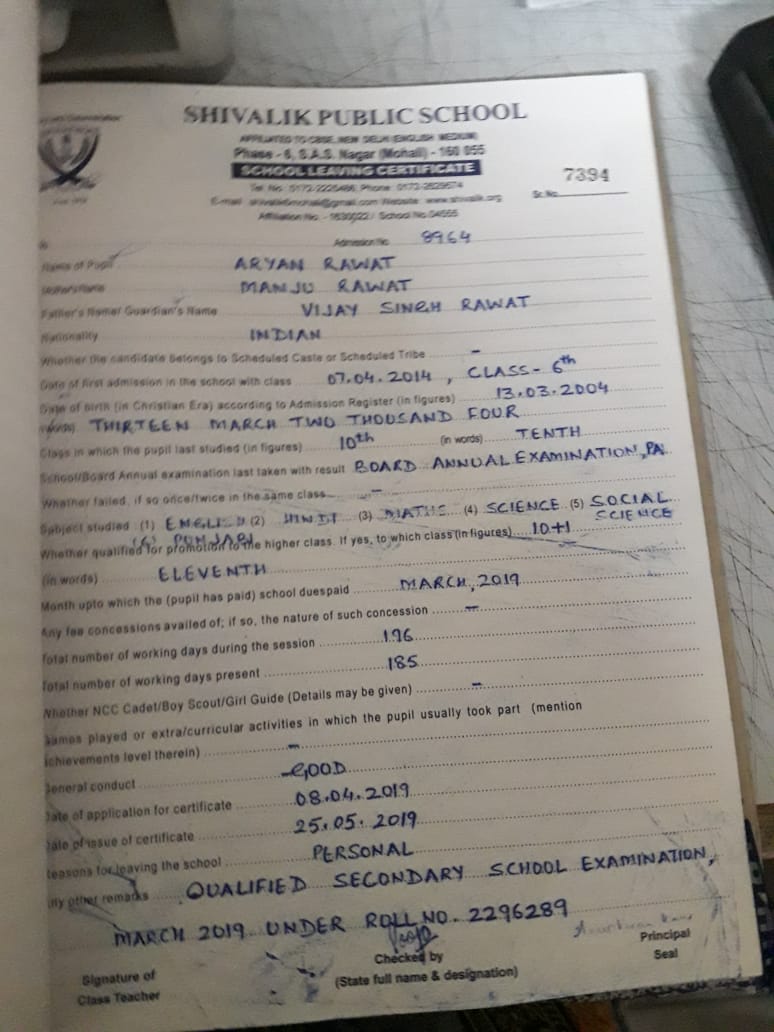 SHIVALIK PUBLIC SCHOOL
AFFILIATED TO CBSE, NEW DELHI (ENGLISH MEDIUM)
Phase - 6, S.A.S. Nagar (Mohali) - 160 055
SCHOOL LEAVING CERTIFICATE
7394
Tel. No. 0172-2225486, Phone : 0172-2629574
Sr. No.
E-mail : shivalik6mohali@gmail.com Website : www.shivalik.org
Affiliation No. - 1630022 / School No. 04555
Admission No. 8964
Name of Pupil ARYAN RAWAT
Mother's Name MANJU RAWAT
Father's Name/ Guardian's Name VIJAY SINGH RAWAT
Nationality INDIAN
Whether the candidate belongs to Scheduled Caste or Scheduled Tribe -
Date of first admission in the school with class 07.04.2014, CLASS-6th
Date of birth (in Christian Era) according to Admission Register (in figures) 13.03.2004
words) THIRTEEN MARCH TWO THOUSAND FOUR
Class in which the pupil last studied (in figures) 10th (in words) TENTH
School/Board Annual examination last taken with result BOARD ANNUAL EXAMINATION, PA
Whether failed, if so once/twice in the same class -
Subject studied : (1) ENGLISH (2) HINDI (3) MATHS (4) SCIENCE (5) SOCIAL SCIENCE
(6) PUNJABI
Whether qualified for promotion to the higher class. If yes, to which class (in figures) 10+1
(in words) ELEVENTH
Month upto which the (pupil has paid) school duespaid MARCH, 2019
Any fee concessions availed of; if so, the nature of such concession -
Total number of working days during the session 196
Total number of working days present 185
Whether NCC Cadet/Boy Scout/Girl Guide (Details may be given) -
Games played or extra/curricular activities in which the pupil usually took part (mention
achievements level therein) -
General conduct GOOD
Date of application for certificate 08.04.2019
Date of issue of certificate 25.05.2019
Reasons for leaving the school PERSONAL
Any other remarks QUALIFIED SECONDARY SCHOOL EXAMINATION,
MARCH 2019 UNDER ROLL NO. 2296289
Signature of
Class Teacher
Checked by
(State full name & designation)
Principal
Seal